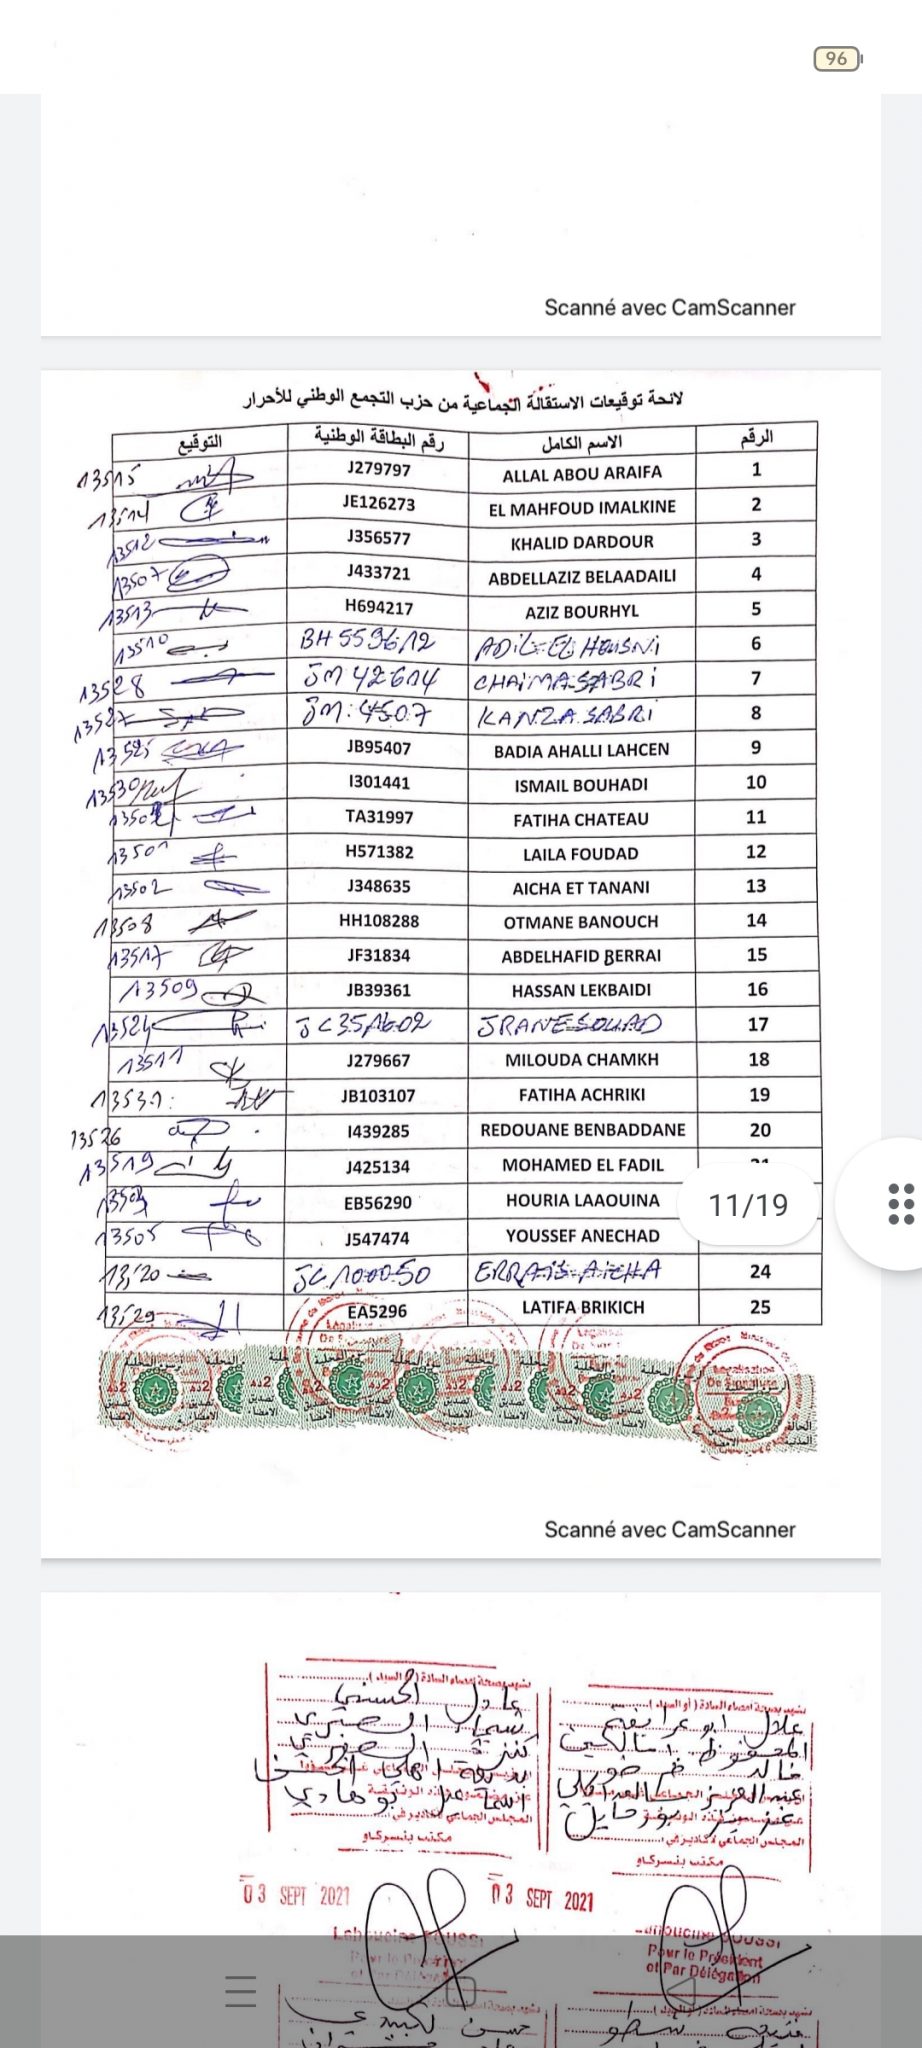 96
Scanné avec CamScanner
لائحة توقيعات الاستقالة الجماعية من حزب التجمع الوطني للأحرار
الرقم الاسم الكامل رقم البطاقة الوطنية التوقيع
1 ALLAL ABOU ARAIFA J279797 13515
2 EL MAHFOUD IMALKINE JE126273 13514
3 KHALID DARDOUR J356577 13512
4 ABDELLAZIZ BELAADAILI J433721 13507
5 AZIZ BOURHYL H694217 13513
6 ADIL EL HOUSNI BH559612 13510
7 CHAIMA SABRI JM 42614 13528
8 KANZA SABRI JM:4507 13527
9 BADIA AHALLI LAHCEN JB95407 13525
10 ISMAIL BOUHADI I301441 13530
11 FATIHA CHATEAU TA31997
12 LAILA FOUDAD H571382 13501
13 AICHA ET TANANI J348635 13502
14 OTMANE BANOUCH HH108288 13508
15 ABDELHAFID BERRAI JF31834 13517
16 HASSAN LEKBAIDI JB39361 13509
17 JRANE SOUAD JC351602 13524
18 MILOUDA CHAMKH J279667 13511
19 FATIHA ACHRIKI JB103107 13531
20 REDOUANE BENBADDANE I439285 13526
MOHAMED EL FADIL J425134 13519
HOURIA LAAOUINA EB56290
YOUSSEF ANECHAD J547474 13505
24 ERRAIS AICHA JC100050 13520
25 LATIFA BRIKICH EA5296 13529
11/19
Scanné avec CamScanner
نشهد بصحة امضاء السادة ( أو السيد )
علال ابو عرايفة
المحفوظ امالكين
خالد ضرضور
عبد العزيز
عزيز بورحايل
مكتب بنسركاو
نشهد بصحة امضاء السادة ( أو السيد )
عادل الحسني
شيماء الصبري
كنزة الصبري
بديعة اهلي لحسن
اسماعيل بوهادي
مكتب بنسركاو
03 SEPT 2021
03 SEPT 2021
Pour le Président
et Par Délégation
حسن لكبيدي